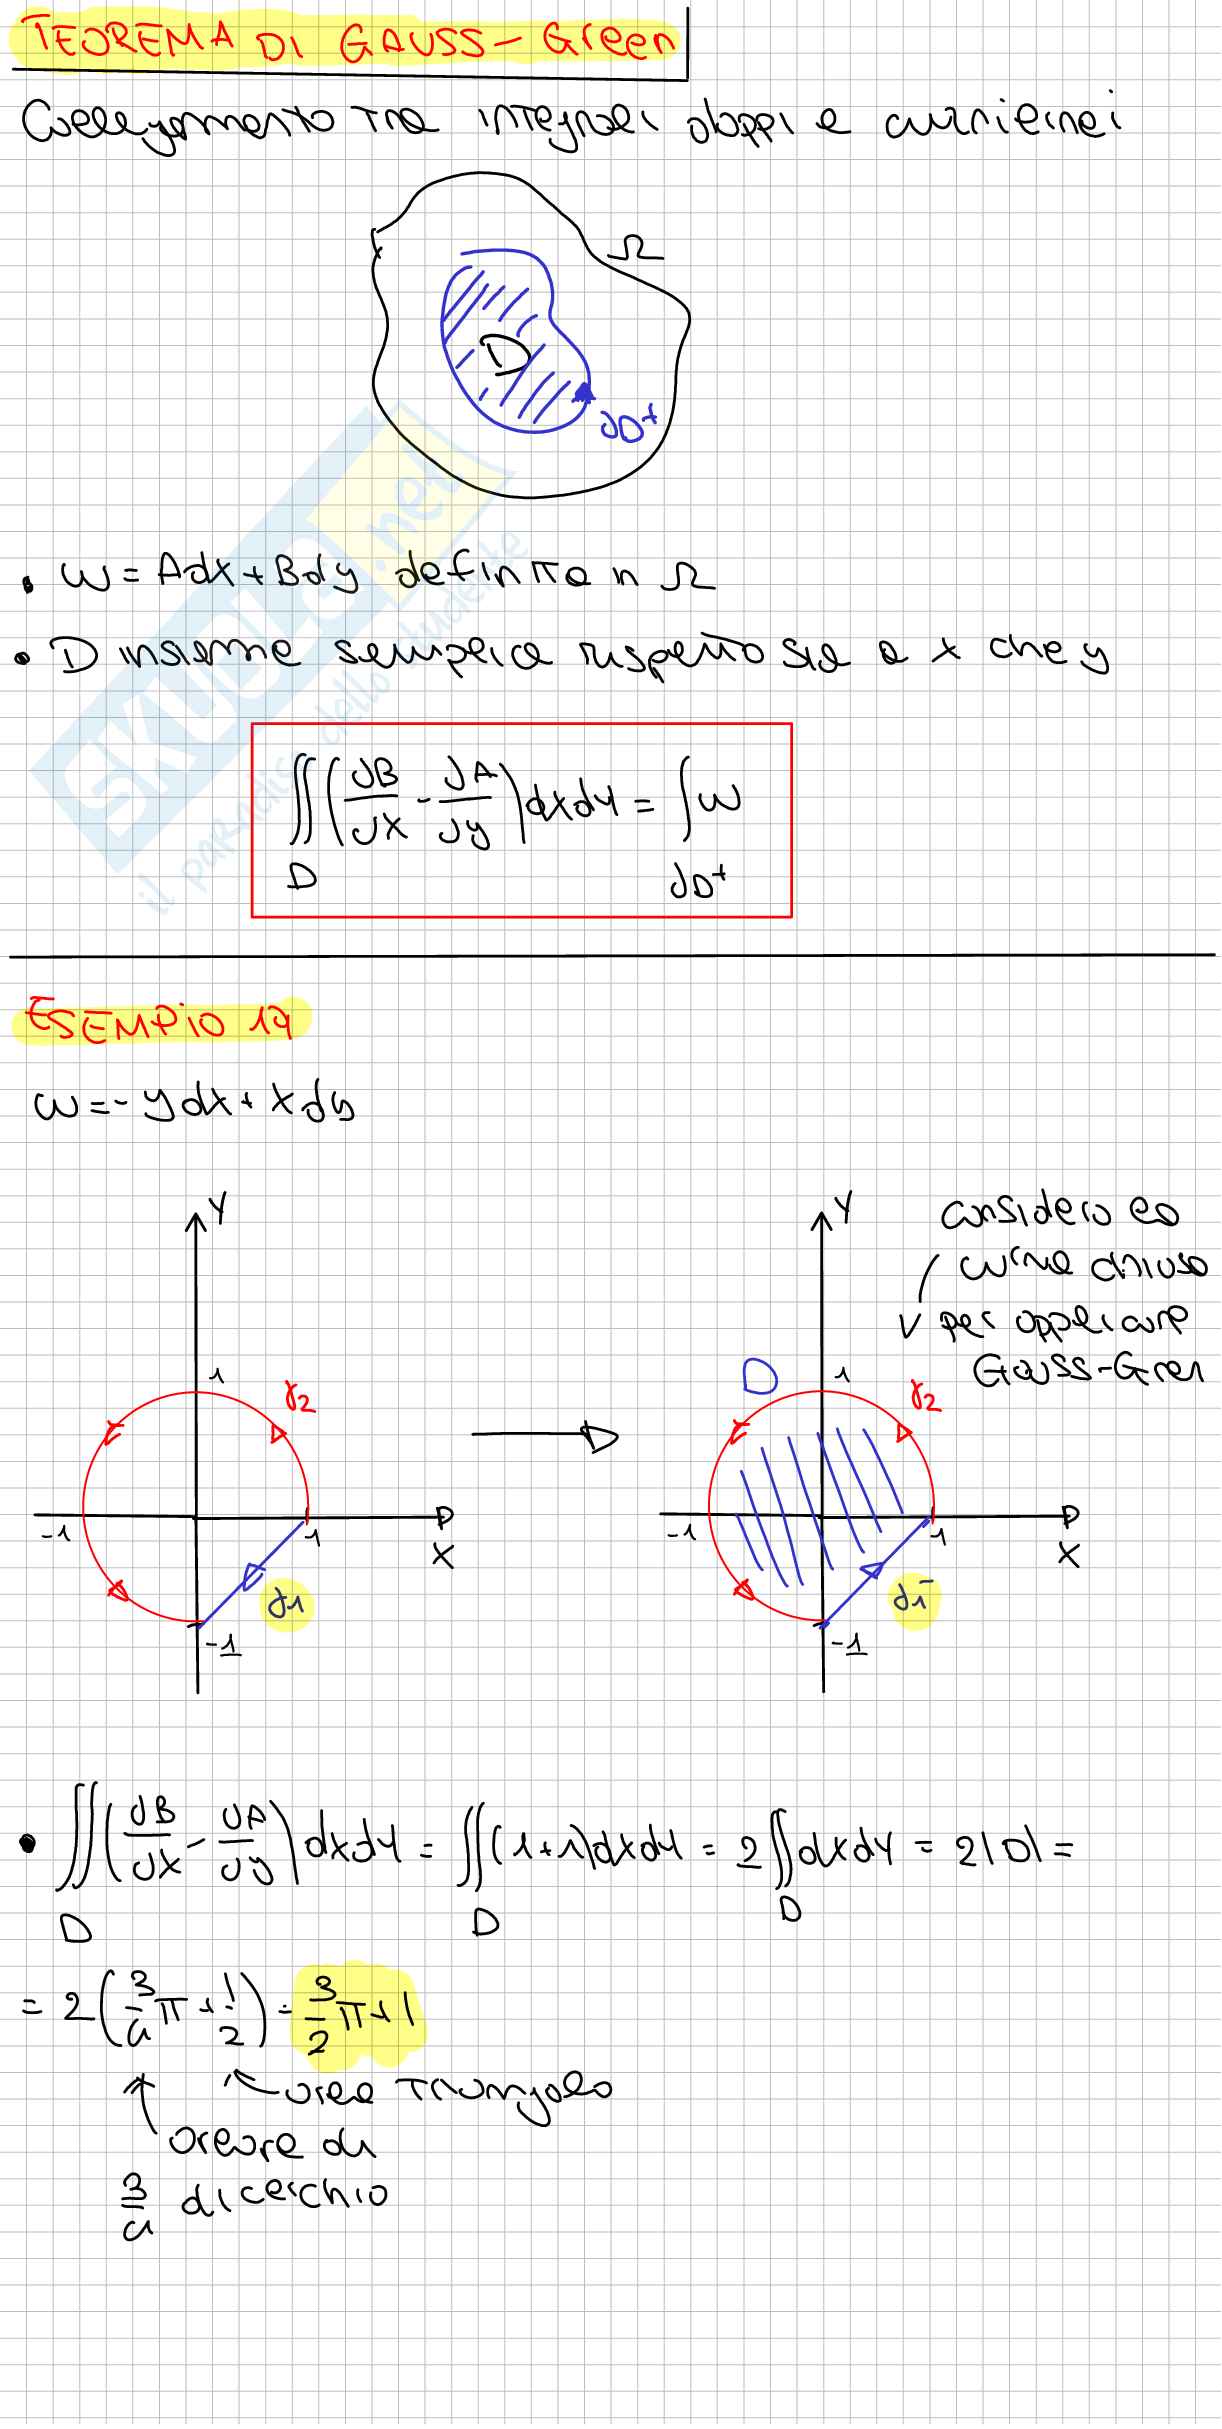 TEOREMA DI GAUSS-Green
Collegamento tra integrali doppi e curvilinei
Ω
D
∂D⁺
• ω = Adx + Bdy definita in Ω
• D insieme semplice rispetto sia a x che y
∬ (∂B/∂x - ∂A/∂y) dxdy = ∫ ω
D ∂D⁺
SKUOLA.net
il paradiso dello studente
ESEMPIO 19
ω = -ydx + xdy
Y
1
γ2
-1
1
X
γ1
-1
considero la
curva chiusa
per applicare
Gauss-Green
Y
D
1
γ2
-1
1
X
γ1⁻
-1
• ∬ (∂B/∂x - ∂A/∂y) dxdy = ∬ (1+1)dxdy = 2∬ dxdy = 2|D| =
D D D
= 2(3/4 π + 1/2) = 3/2 π + 1
area triangolo
di
3/4 di cerchio